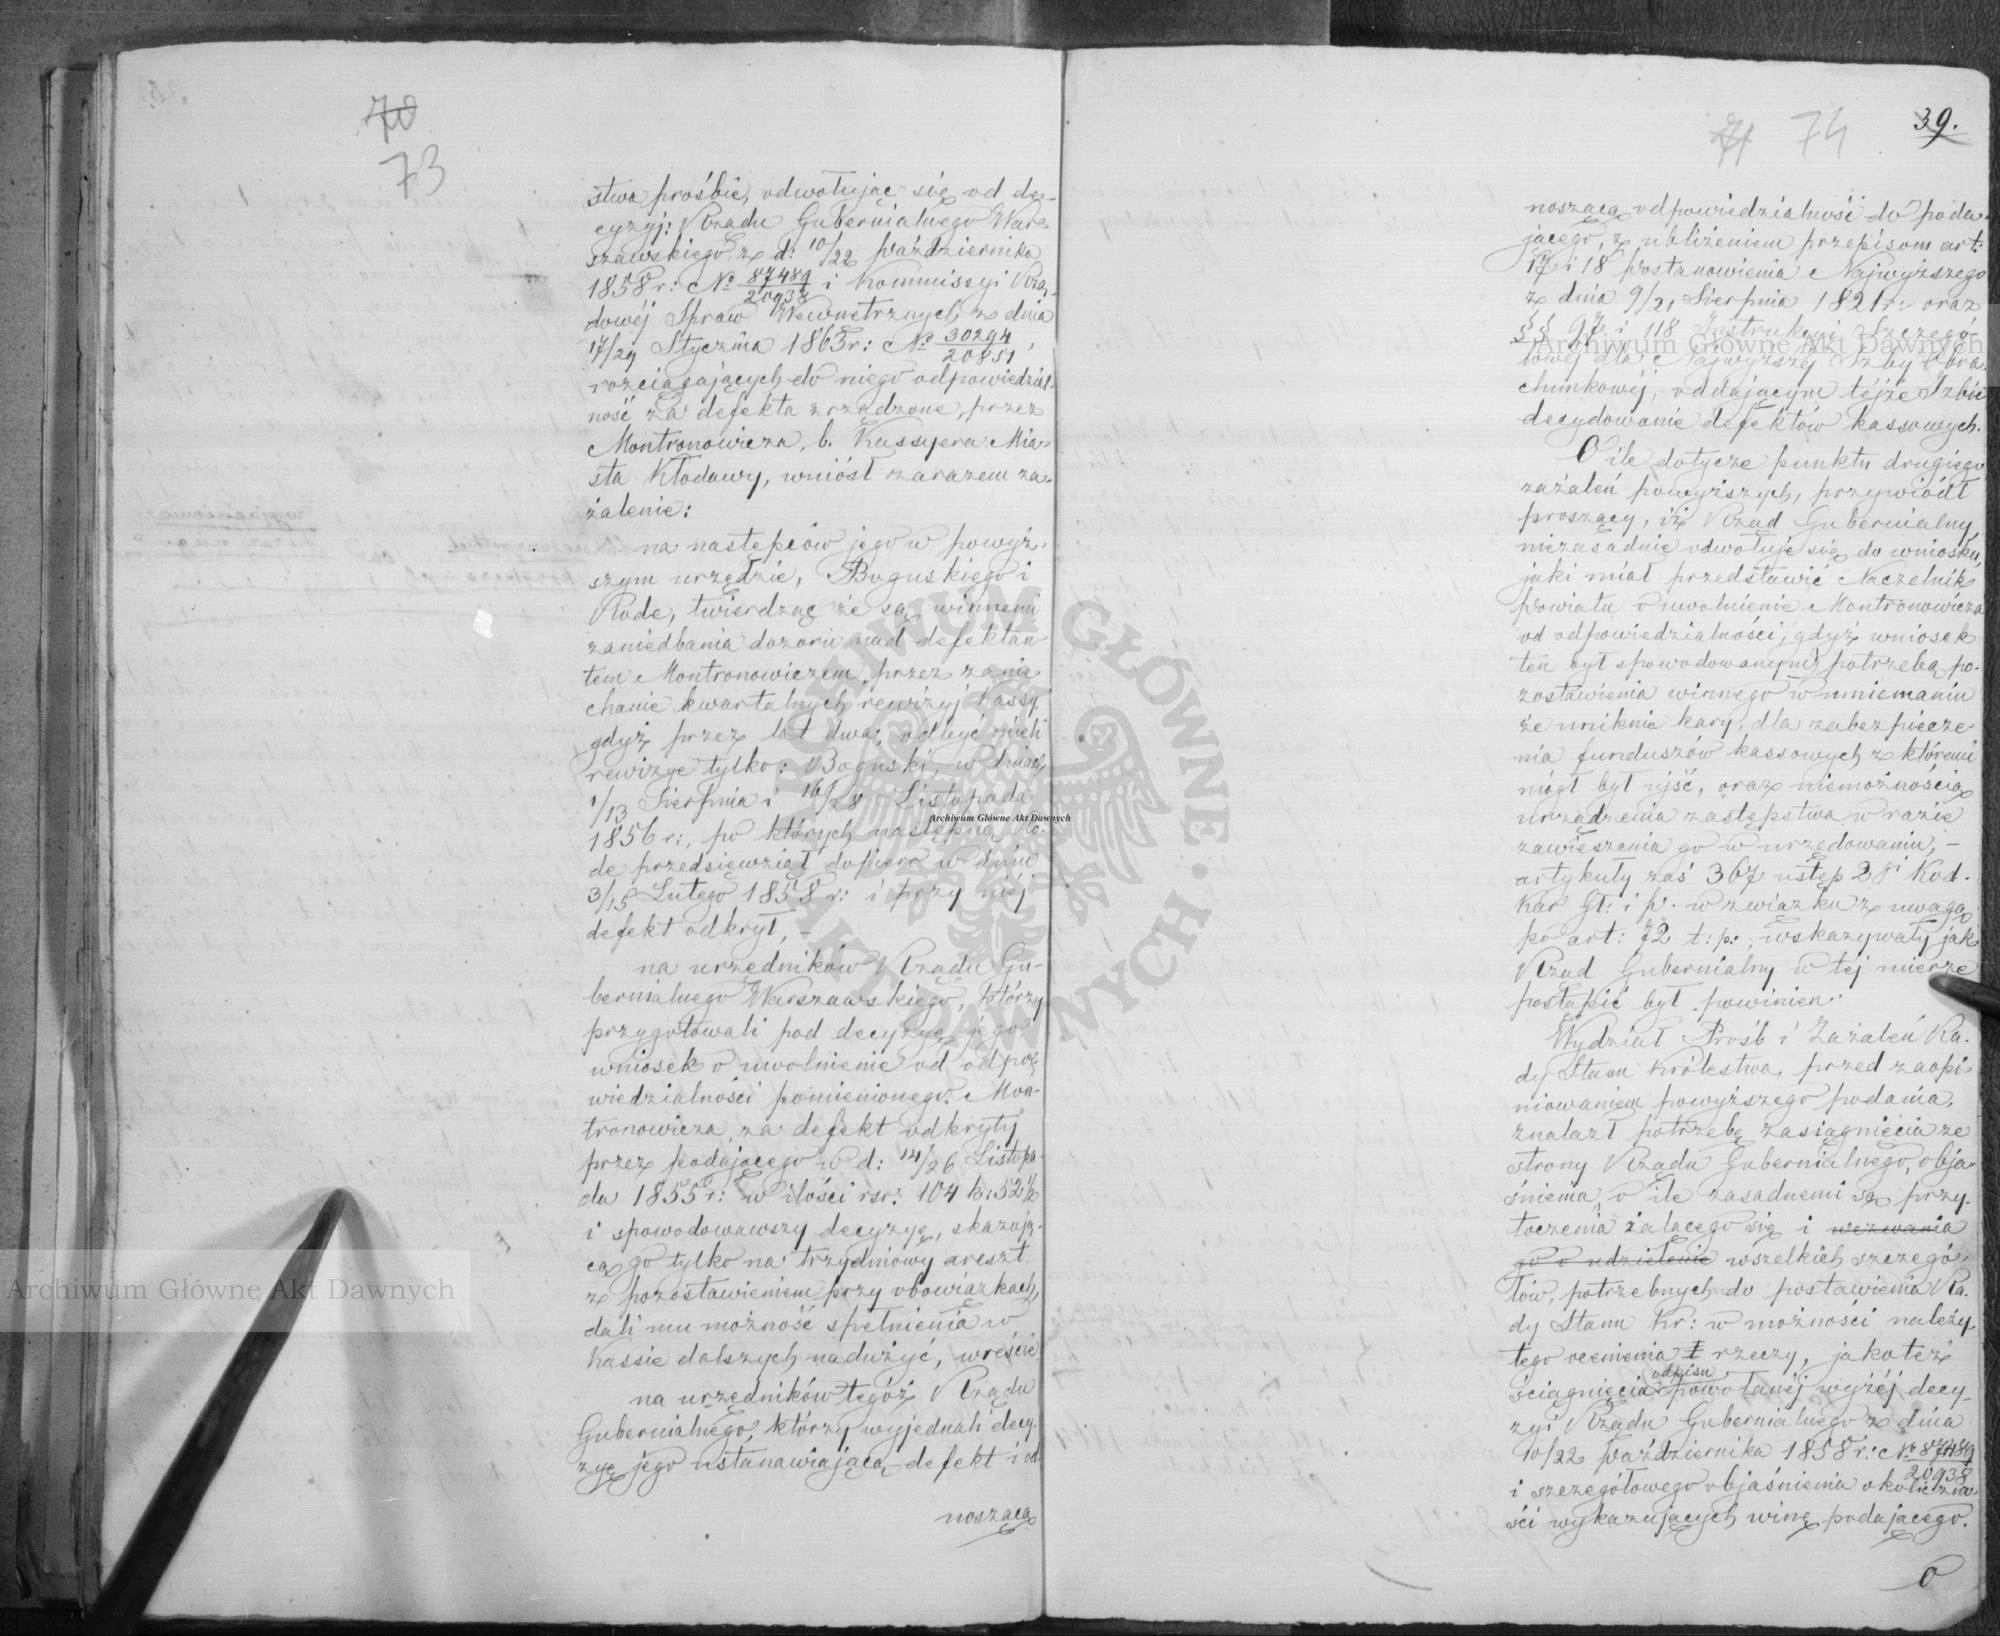 70
73
stwa prośbie, odwołując się od de-
cyzyj: Rządu Gubernialnego War-
szawskiego z d: 10/22 Października
1858 r: No 87489/20938 i Kommissyi Rzą-
dowéj Spraw Wewnętrznych z dnia
17/29 Stycznia 1863 r: No 30294/20851,
rozciągających do niego odpowiedzial-
ność za defekta zrządzone, przez
Montronowicza, b. Kassyera Mia-
sta Kłodawy, wniósł zarazem za-
żalenie:
na następców jego w powyż-
szym urzędzie, Boguskiego i
Rode, twierdząc że są winnemi
zaniedbania dozoru nad defektan-
tem Montronowiczem, przez zanie-
chanie kwartalnych rewizyj kassy,
gdyż przez lat dwa, odbyć mieli
rewizye tylko: Boguski, w dniach
1/13 Sierpnia i 16/28 Listopada
1856 r:, po których następną Ro-
de przedsięwziął dopiero w dniu
3/15 Lutego 1858 r: i przy niéj
defekt odkrył,
na urzędników Rządu Gu-
bernialnego Warszawskiego, którzy
przygotowali pod decyzyę jego
wniosek o uwolnienie od odpo-
wiedzialności pomienionego Mon-
tronowicza, za defekt odkryty
przez podającego w d: 14/26 Listopa-
da 1855 r: w ilości rsr: 104 k: 52½
i spowodowawszy decyzyę, skazują-
cą go tylko na trzydniowy areszt
z pozostawieniem przy obowiązkach,
dali mu możność spełnienia w
Kassie dalszych nadużyć, wreście
na urzędników tegóż Rządu
Gubernialnego, którzy wyjednali decy-
zyę jego ustanawiającą defekt i od-
noszącą
71 74 39.
noszącą odpowiedzialność do poda-
jącego, z ubliżeniem przepisom art:
17 i 18 Postanowienia Najwyższego
z dnia 9/21 Sierpnia 1821 r: oraz
§§ 97 i 118 Instrukcyi Szczegó-
łowéj dla Najwyższéj Izby Obra-
chunkowéj, oddającym téjże Izbie
decydowanie defektów kassowych.
O ile dotycze punktu drugiego
zażaleń powyższych, przywiódł
proszący, iż Rząd Gubernialny,
niezasadnie odwołuje się do wniosku,
jaki miał przedstawić Naczelnik
Powiatu o uwolnienie Montronowicza
od odpowiedzialności, gdyż wniosek
ten był spowodowanym potrzebą po-
zostawienia winnego w mniemaniu
że uniknie kary, dla zabezpiecze-
nia funduszów kassowych z któremi
mógł był ujść, oraz niemożnością
urządzenia zastępstwa w razie
zawieszenia go w urzędowaniu, –
artykuły zaś 367 ustęp 2gi Kod.
Kar Gł: i P. w związku z uwagą
po art: 72 t: p:, wskazywały jak
Rząd Gubernialny w téj mierze
postąpić był powinien.
Wydział Próśb i Zażaleń Ra-
dy Stanu Królestwa, przed zaopi-
niowaniem powyższego podania,
znalazł potrzebę zasiągnięcia ze
strony Rządu Gubernialnego, obja-
śnienia o ile zasadnemi są przy-
toczenia żalącego się i wezwania
go o udzielenie wszelkich szczegó-
łów, potrzebnych do postawienia Ra-
dy Stanu Kr: w możności należy-
tego ocenienia rzeczy, jakoteż
odpisu
ściągnięcia powołanéj wyżéj decy-
zyi Rządu Gubernialnego z dnia
10/22 Października 1858 r: No 87489/20938
i szczegółowego objaśnienia okoliczno-
ści wykazujących winę podającego.
O
Archiwum Główne Akt Dawnych
Archiwum Główne Akt Dawnych
Archiwum Główne Akt Dawnych
ARCHIWUM GŁÓWNE • AKT DAWNYCH •